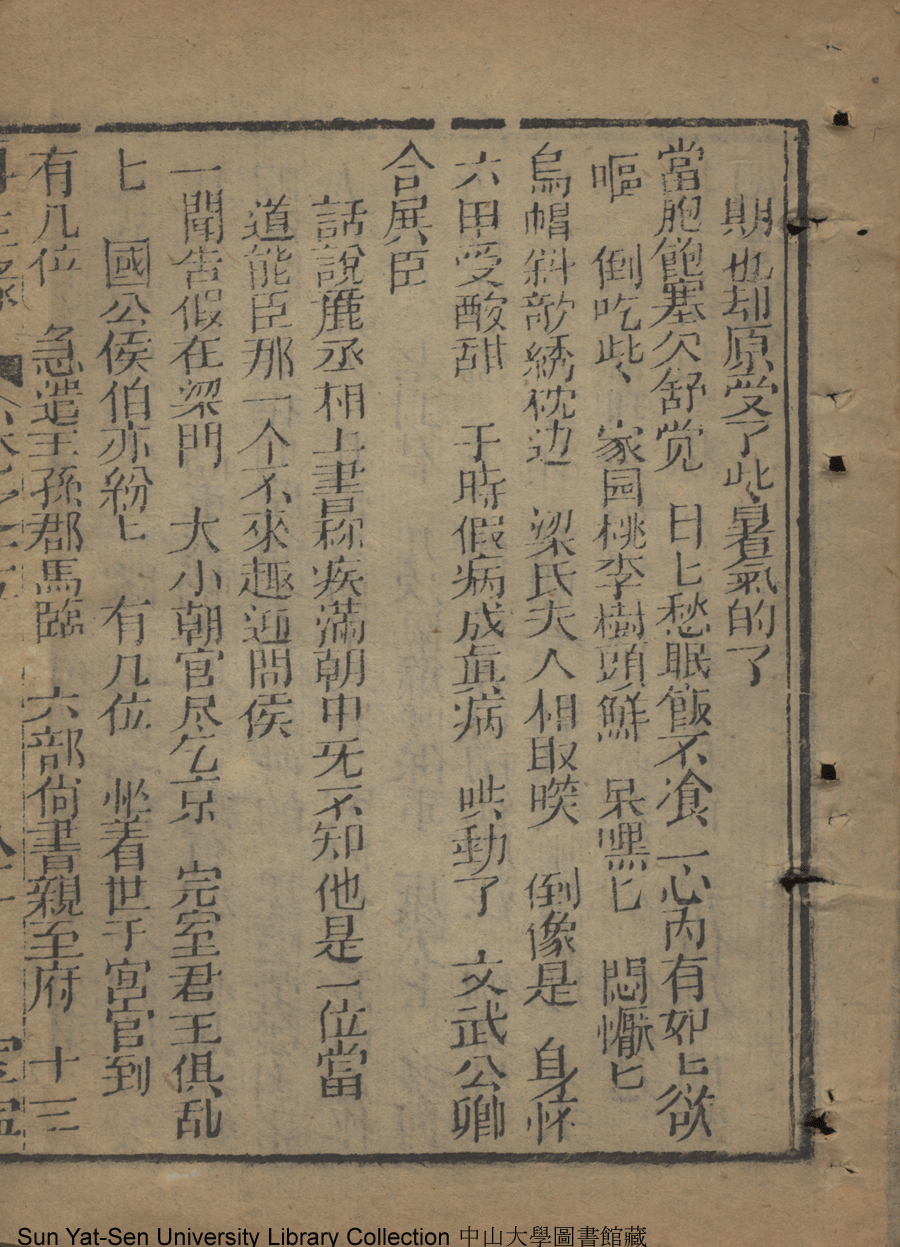 期也却原受了此暑氣的了
當胞飽塞欠舒觉　日匕愁眠飯不飡　一心丙有如匕欲
嘔　倒吃此　家园桃李樹頭鮮　呆嘿匕　悶懨匕
烏帽斜歆綉枕边　梁氏夫人相取𥬇　倒像是　身怀
六甲受酸甜　于時假病成眞病　哄動了　文武公卿
合展臣
話說鹿丞相上書称疾滿朝中旡不知他是一位當
道能臣那一个不來趣迎問侯
一聞告假在梁門　大小朝官尽乞京　完室君王俱乱
匕　國公侯伯亦紛匕　有几位　坐着世子宮官到
有几位　急遣王孫郡馬臨　六部尙書親至府　十三
Sun Yat-Sen University Library Collection 中山大學圖書館藏